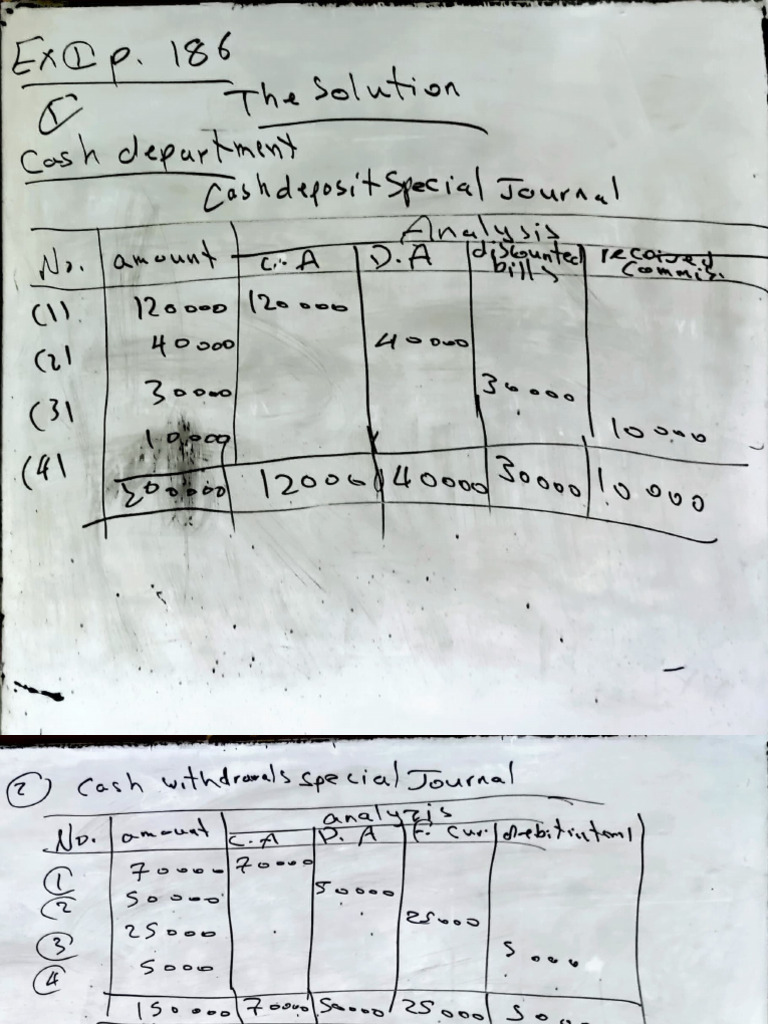 Ex ① p. 186
① The Solution
Cash department
Cash deposit Special Journal
Analysis
No. amount C.A D.A discounted bills received Commis.
(1) 120000 120000
(2) 40000 40000
(3) 30000 30000
(4) 10,000 10000
200000 120000 40000 30000 10000
② Cash withdrawals special Journal
analyzis
No. amount C.A D.A F. Cur.
① 70000 70000
② 50000 50000
③ 25000 25000
④ 5000 5000
150000 70000 50000 25000 50